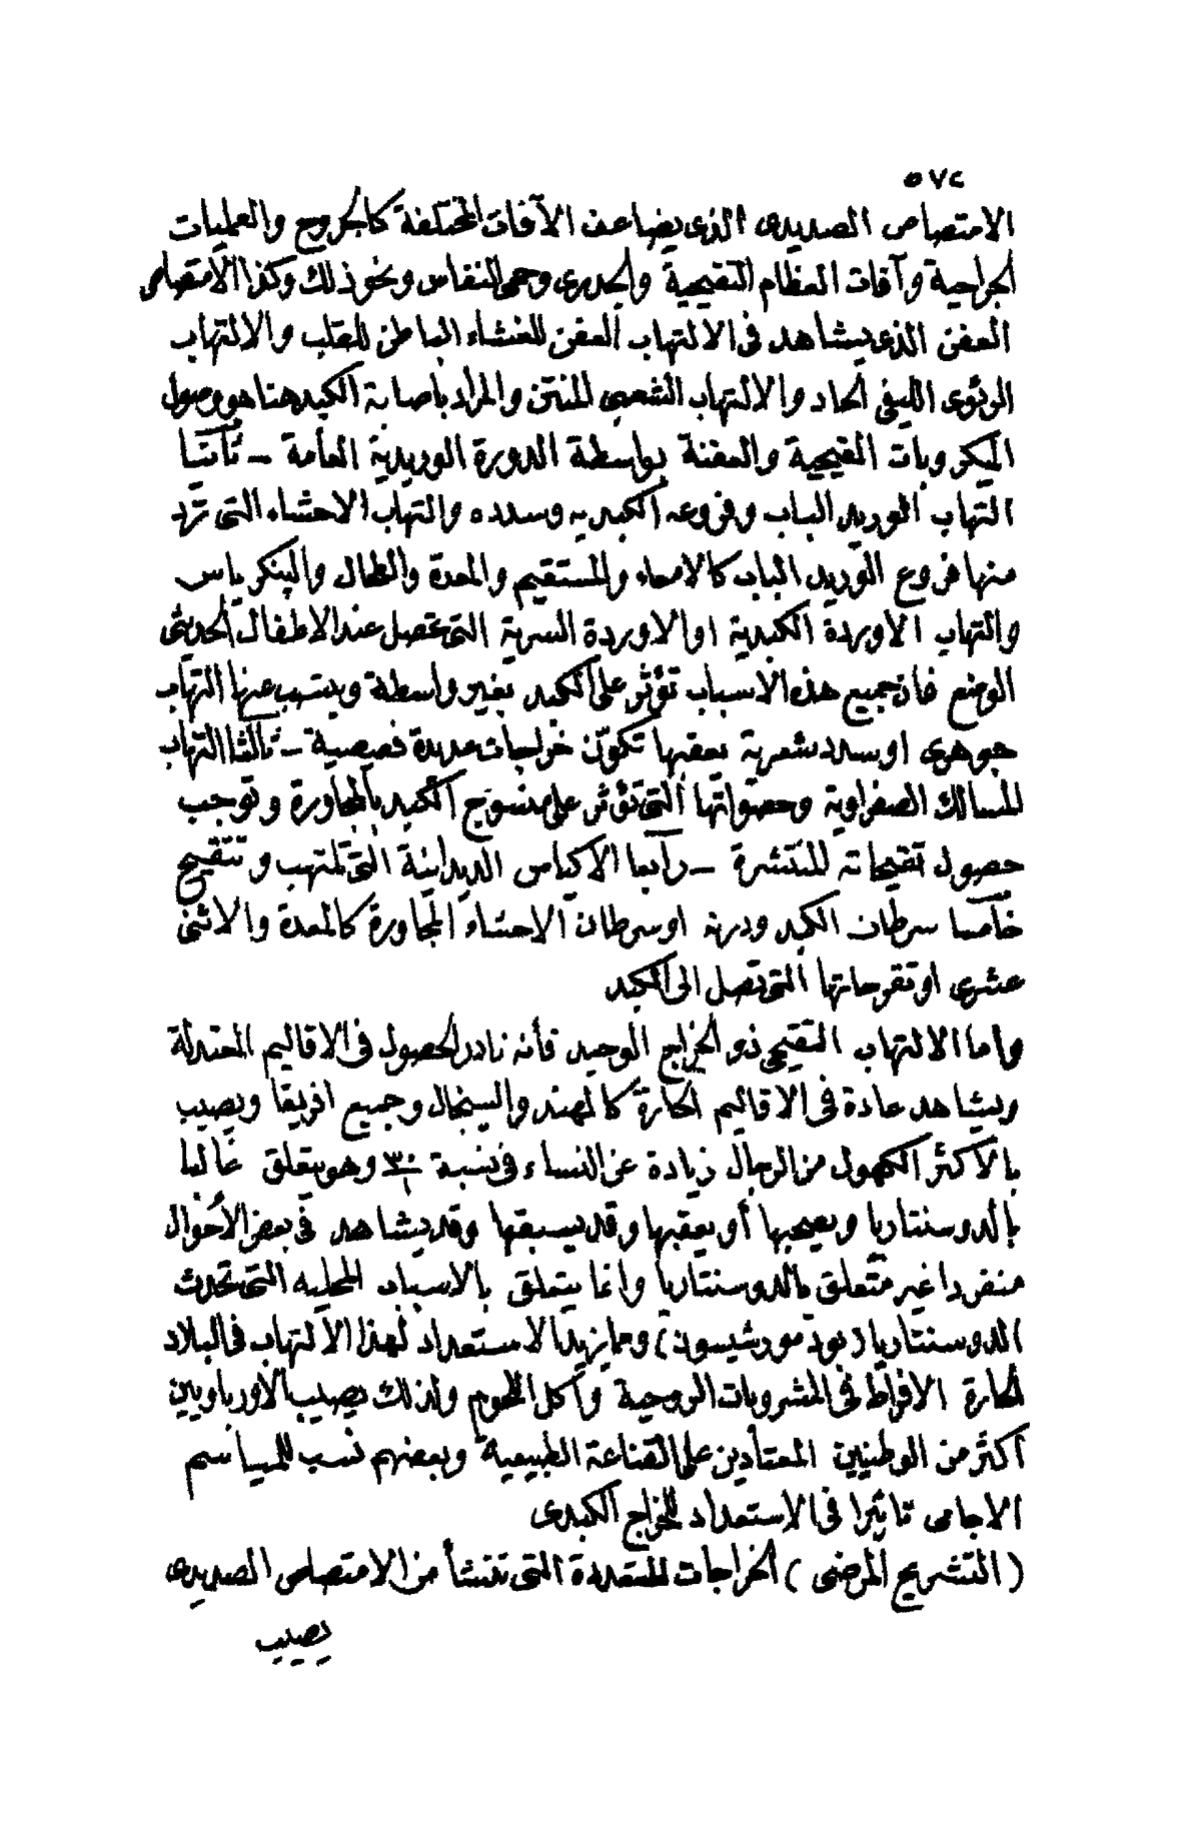 ٥٧٢
الامتصاص الصديدى الذى يضاعف الآفات المختلفة كالجروح والعمليات
الجراحية وآفات العظام التقيحية والجدرى وحمى النفاس ونحوذلك وكذا الامتصاص
العفن الذى يشاهد فى الالتهاب العفن للغشاء الباطن للقلب والالتهاب
الرئوى الليفى الحاد والالتهاب الشعبى المنتن والمراد باصابة الكبد هنا هو وصول
الميكروبات القيحية والعفنة بواسطة الدورة الوريدية العامة – ثانيا
التهاب الوريد الباب وفروعه الكبديه وسدده والتهاب الاحشاء التى ترد
منها فروع الوريد الباب كالامعاء والمستقيم والمعدة والطحال والپنكرياس
والتهاب الاوردة الكبدية او الاوردة السرية التى تحصل عند الاطفال الحديثى
الوضع فان جميع هذه الاسباب تؤثر على الكبد بغير واسطة ويتسبب عنها التهاب
جوهرى او سدد شعرية يعقبها تكوّن خراجات عديدة فصيصية – ثالثا التهاب
المسالك الصفراوية وحصواتها التى تؤثر على منسوج الكبد بالمجاورة وتوجب
حصول تقيحاته المنتشرة – رابعا الاكياس الديدانية التى تلتهب وتتقيح
خامسا سرطان الكبد ودرنه او سرطان الاحشاء المجاورة كالمعدة والاثنى
عشرى او تقرحاتها التى تصل الى الكبد
واما الالتهاب التقيحى ذو الخراج الوحيد فأنه نادر الحصول فى الاقاليم المعتدلة
ويشاهد عادة فى الاقاليم الحارة كالهند والسينجال وجميع افريقا ويصيب
بالاكثر الكهول من الرجال زيادة عن النساء فى نسبة وهو يتعلق غالبا
بالدوسنتاريا ويصحبها أو يعقبها وقد يسبقها وقد يشاهد فى بعض الأحوال
منفردا غير متعلق بالدوسنتاريا وانما يتعلق بالاسباب المحليه التى تحدث
الدوسنتاريا ( نود مورشيسون ) ومما يزيد الاستعداد لهذا الالتهاب فى البلاد
الحارة الافراط فى المشروبات الروحية وأكل اللحوم ولذلك يصيب الاورباويين
أكثر من الوطنيين المعتادين على القناعة الطبيعية وبعضهم نسب للمياسم
الاجامى تاثيرا فى الاستعداد للخراج الكبدى
( التشريح المرضى ) الخراجات المتعددة التى تنشأ من الامتصاص الصديدى
يصيب